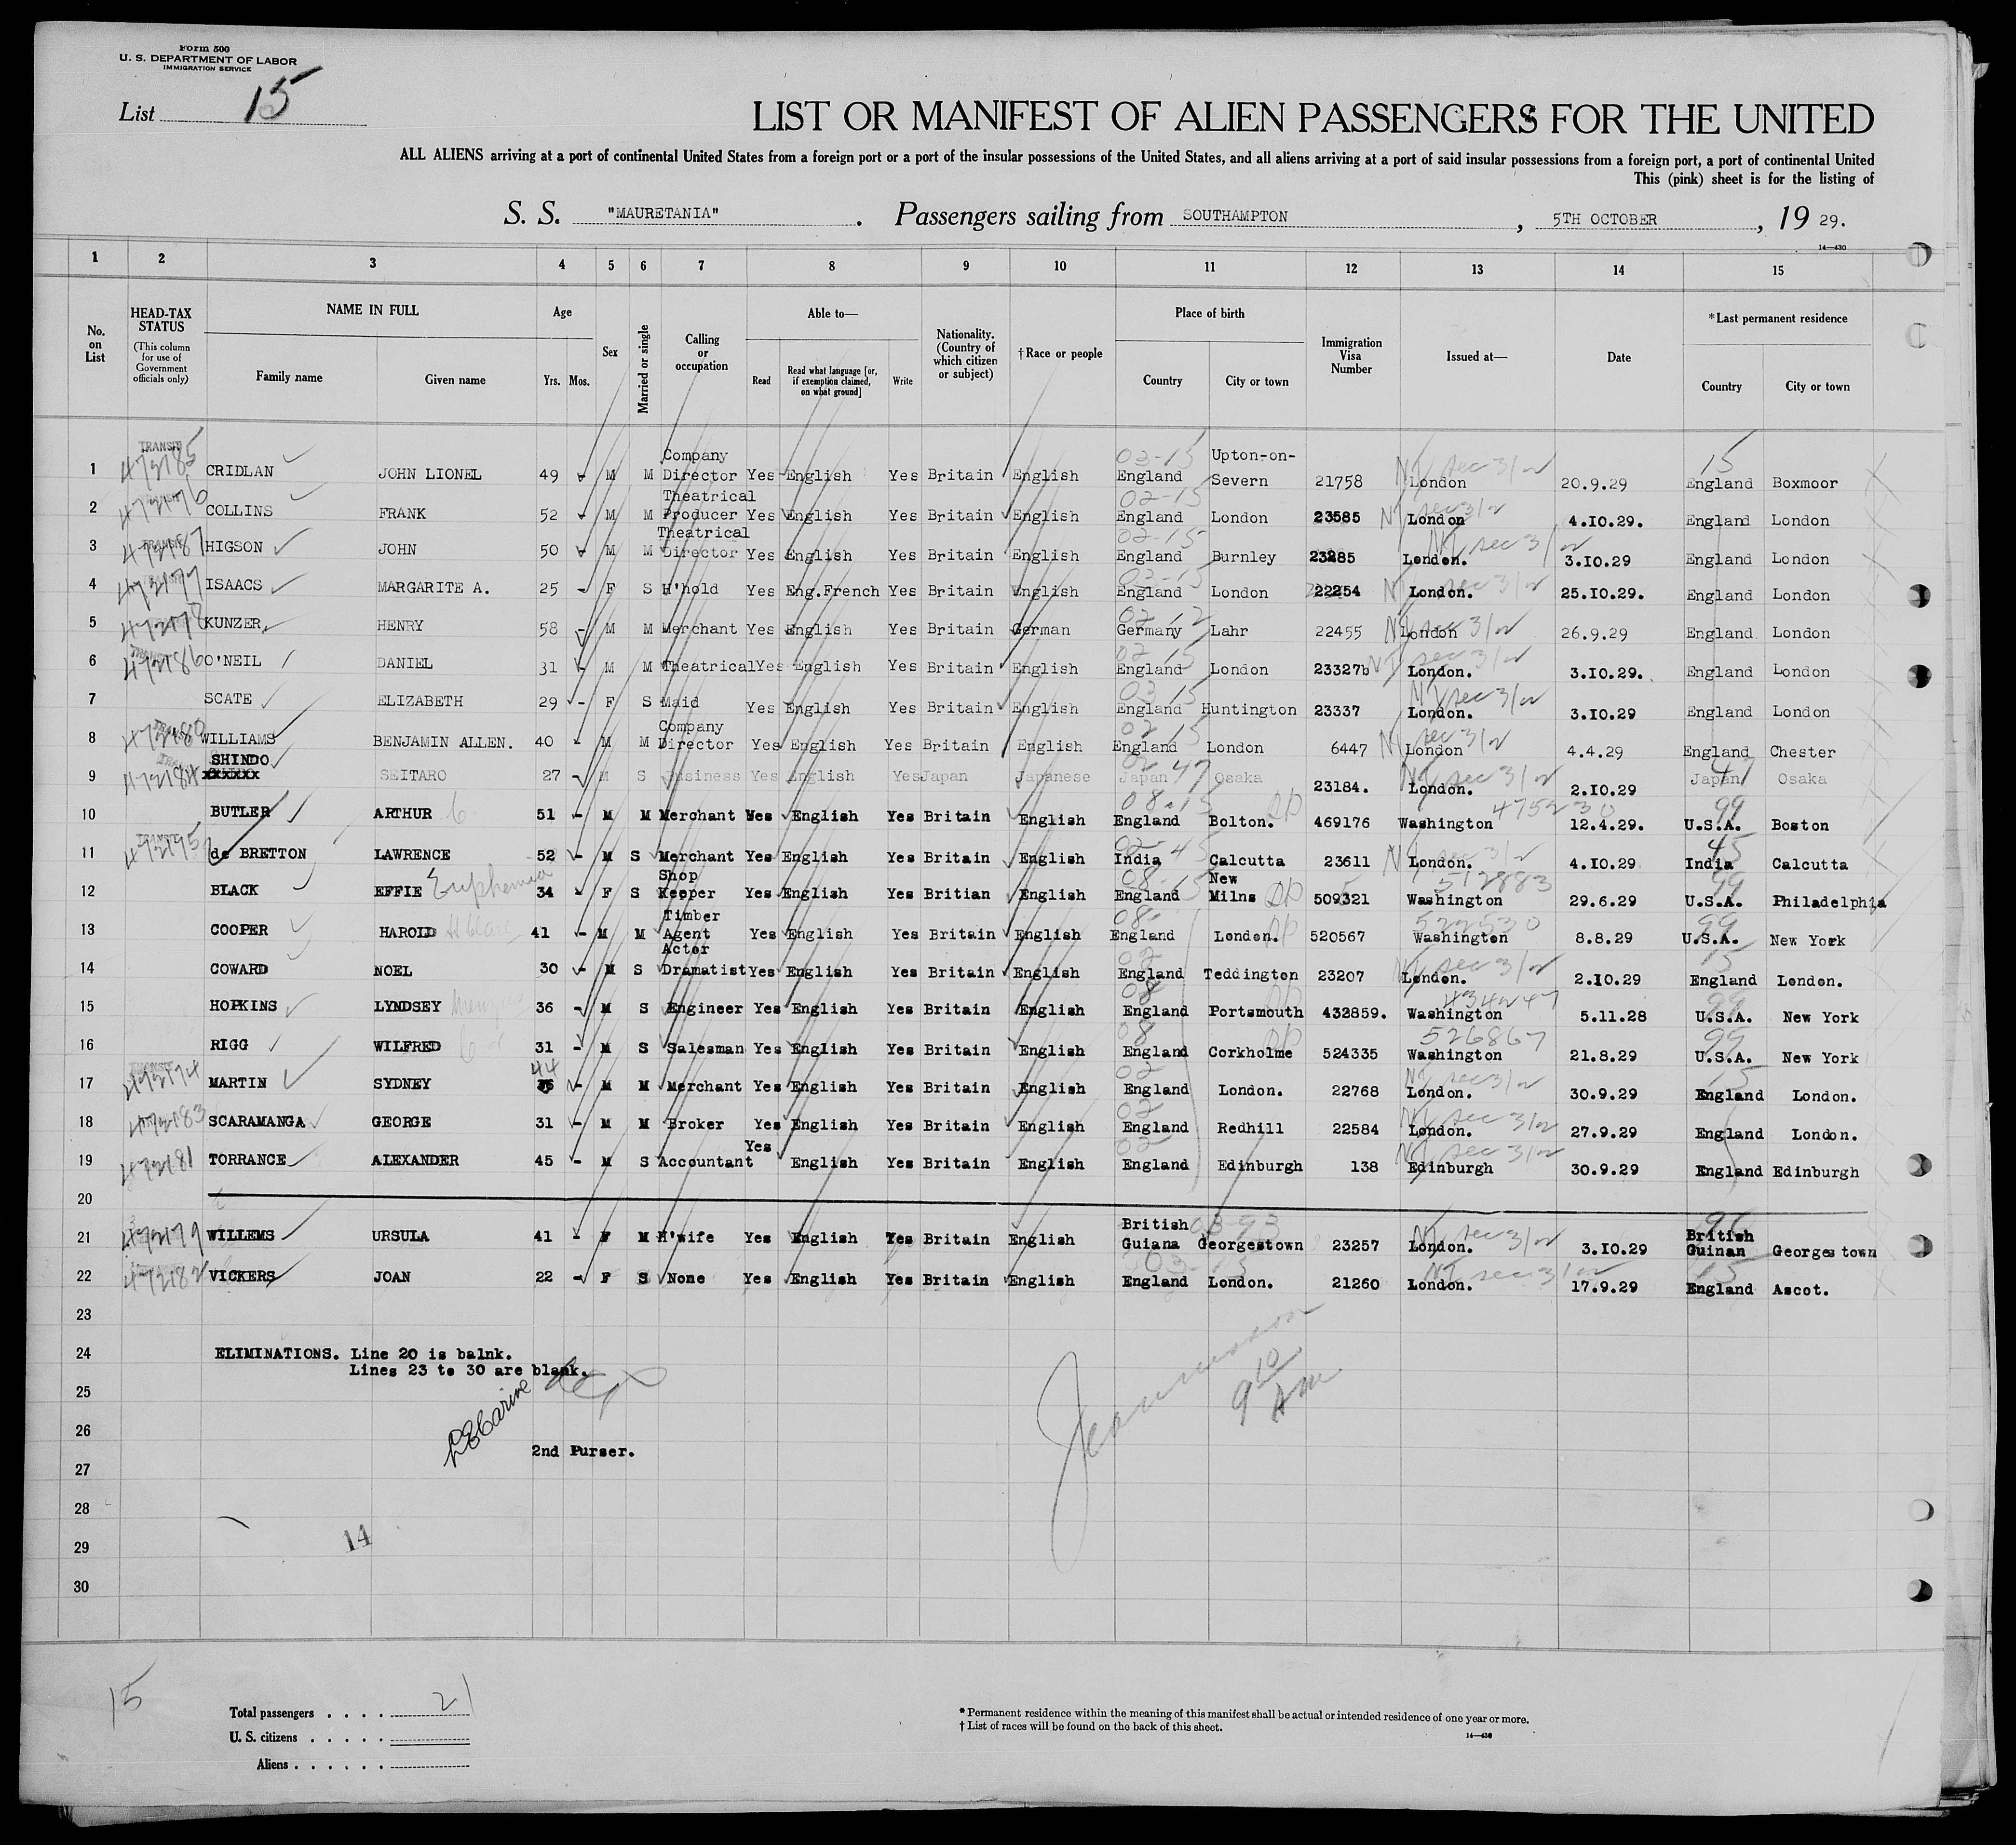 Form 500
U. S. DEPARTMENT OF LABOR
IMMIGRATION SERVICE
List 15
LIST OR MANIFEST OF ALIEN PASSENGERS FOR THE UNITED
ALL ALIENS arriving at a port of continental United States from a foreign port or a port of the insular possessions of the United States, and all aliens arriving at a port of said insular possessions from a foreign port, a port of continental United
This (pink) sheet is for the listing of
S. S. "MAURETANIA". Passengers sailing from SOUTHAMPTON, 5TH OCTOBER, 19 29.
14—430
1 2 3 4 5 6 7 8 9 10 11 12 13 14 15
No. on List
HEAD-TAX STATUS (This column for use of Government officials only)
NAME IN FULL
Family name Given name
Age
Yrs. Mos.
Sex
Married or single
Calling or occupation
Able to—
Read Read what language [or, if exemption claimed, on what ground] Write
Nationality. (Country of which citizen or subject)
†Race or people
Place of birth
Country City or town
Immigration Visa Number
Issued at—
Date
*Last permanent residence
Country City or town
1 TRANSIT 472185 CRIDLAN JOHN LIONEL 49 - M M Company Director Yes English Yes Britain English 03-15 England Upton-on-Severn 21758 London NI sec 3/2 20.9.29 15 England Boxmoor
2 472176 COLLINS FRANK 52 - M M Theatrical Producer Yes English Yes Britain English 02-15 England London 23585 London NI sec 3/2 4.10.29. England London
3 472187 HIGSON JOHN 50 - M M Theatrical Director Yes English Yes Britain English 02-15 England Burnley 23285 London. NI sec 3/2 3.10.29 England London
4 472177 ISAACS MARGARITE A. 25 - F S H'hold Yes Eng.French Yes Britain English 02-15 England London 22254 London. NI sec 3/2 25.10.29. England London
5 472178 KUNZER HENRY 58 - M M Merchant Yes English Yes Britain German 02-12 Germany Lahr 22455 London NI sec 3/2 26.9.29 England London
6 472186 O'NEIL DANIEL 31 - M M Theatrical Yes English Yes Britain English 02 15 England London 23327b London. NI sec 3/2 3.10.29. England London
7 SCATE ELIZABETH 29 - F S Maid Yes English Yes Britain English 03 15 England Huntington 23337 London. NI sec 3/2 3.10.29 England London
8 472180 WILLIAMS BENJAMIN ALLEN. 40 - M M Company Director Yes English Yes Britain English 02 15 England London 6447 London NI sec 3/2 4.4.29 England Chester
9 472184 SHINDO xxxxxx SEITARO 27 - M S Business Yes English Yes Japan Japanese 02 47 Japan Osaka 23184. London. NI sec 3/2 2.10.29 47 Japan Osaka
10 BUTLER ARTHUR 51 - M M Merchant Yes English Yes Britain English 08-15 England Bolton. 469176 Washington 475230 12.4.29. 99 U.S.A. Boston
11 de BRETTON LAWRENCE 52 - M S Merchant Yes English Yes Britain English 02-45 India Calcutta 23611 London. NI sec 3/2 4.10.29 45 India Calcutta
12 BLACK EFFIE Euphemia 34 - F S Shop Keeper Yes English Yes Britian English 08-15 England New Milns 509321 Washington 512883 29.6.29 99 U.S.A. Philadelphia
13 COOPER HAROLD 41 - M M Timber Agent Yes English Yes Britain English 08 England London. 520567 Washington 522530 8.8.29 99 U.S.A. New York
14 COWARD NOEL 30 - M S Actor Dramatist Yes English Yes Britain English 02 England Teddington 23207 London. NI sec 3/2 2.10.29 15 England London.
15 HOPKINS LYNDSEY 36 - M S Engineer Yes English Yes Britain English 08 England Portsmouth 432859. Washington 434247 5.11.28 99 U.S.A. New York
16 RIGG WILFRED 31 - M S Salesman Yes English Yes Britain English 08 England Corkholme 524335 Washington 526867 21.8.29 99 U.S.A. New York
17 472174 MARTIN SYDNEY 44 - M M Merchant Yes English Yes Britain English 02 England London. 22768 London. NI sec 3/2 30.9.29 15 England London.
18 472183 SCARAMANGA GEORGE 31 - M M Broker Yes English Yes Britain English 02 England Redhill 22584 London. NI sec 3/2 27.9.29 England London.
19 472181 TORRANCE ALEXANDER 45 - M S Accountant Yes English Yes Britain English 02 England Edinburgh 138 Edinburgh NI sec 3/2 30.9.29 England Edinburgh
20
21 472179 WILLEMS URSULA 41 - F M H'wife Yes English Yes Britain English 03-93 British Guiana Georgestown 23257 London. NI sec 3/2 3.10.29 British Guinan Georgestown
22 472182 VICKERS JOAN 22 - F S None Yes English Yes Britain English 03-15 England London. 21260 London. NI sec 3/2 17.9.29 15 England Ascot.
23
24 ELIMINATIONS. Line 20 is balnk.
Lines 23 to 30 are blank.
25
26
2nd Purser.
9 10 AM
27
28
29 14
30
15
Total passengers . . . . 21
U. S. citizens . . . . .
Aliens . . . . . .
* Permanent residence within the meaning of this manifest shall be actual or intended residence of one year or more.
† List of races will be found on the back of this sheet.
14—430